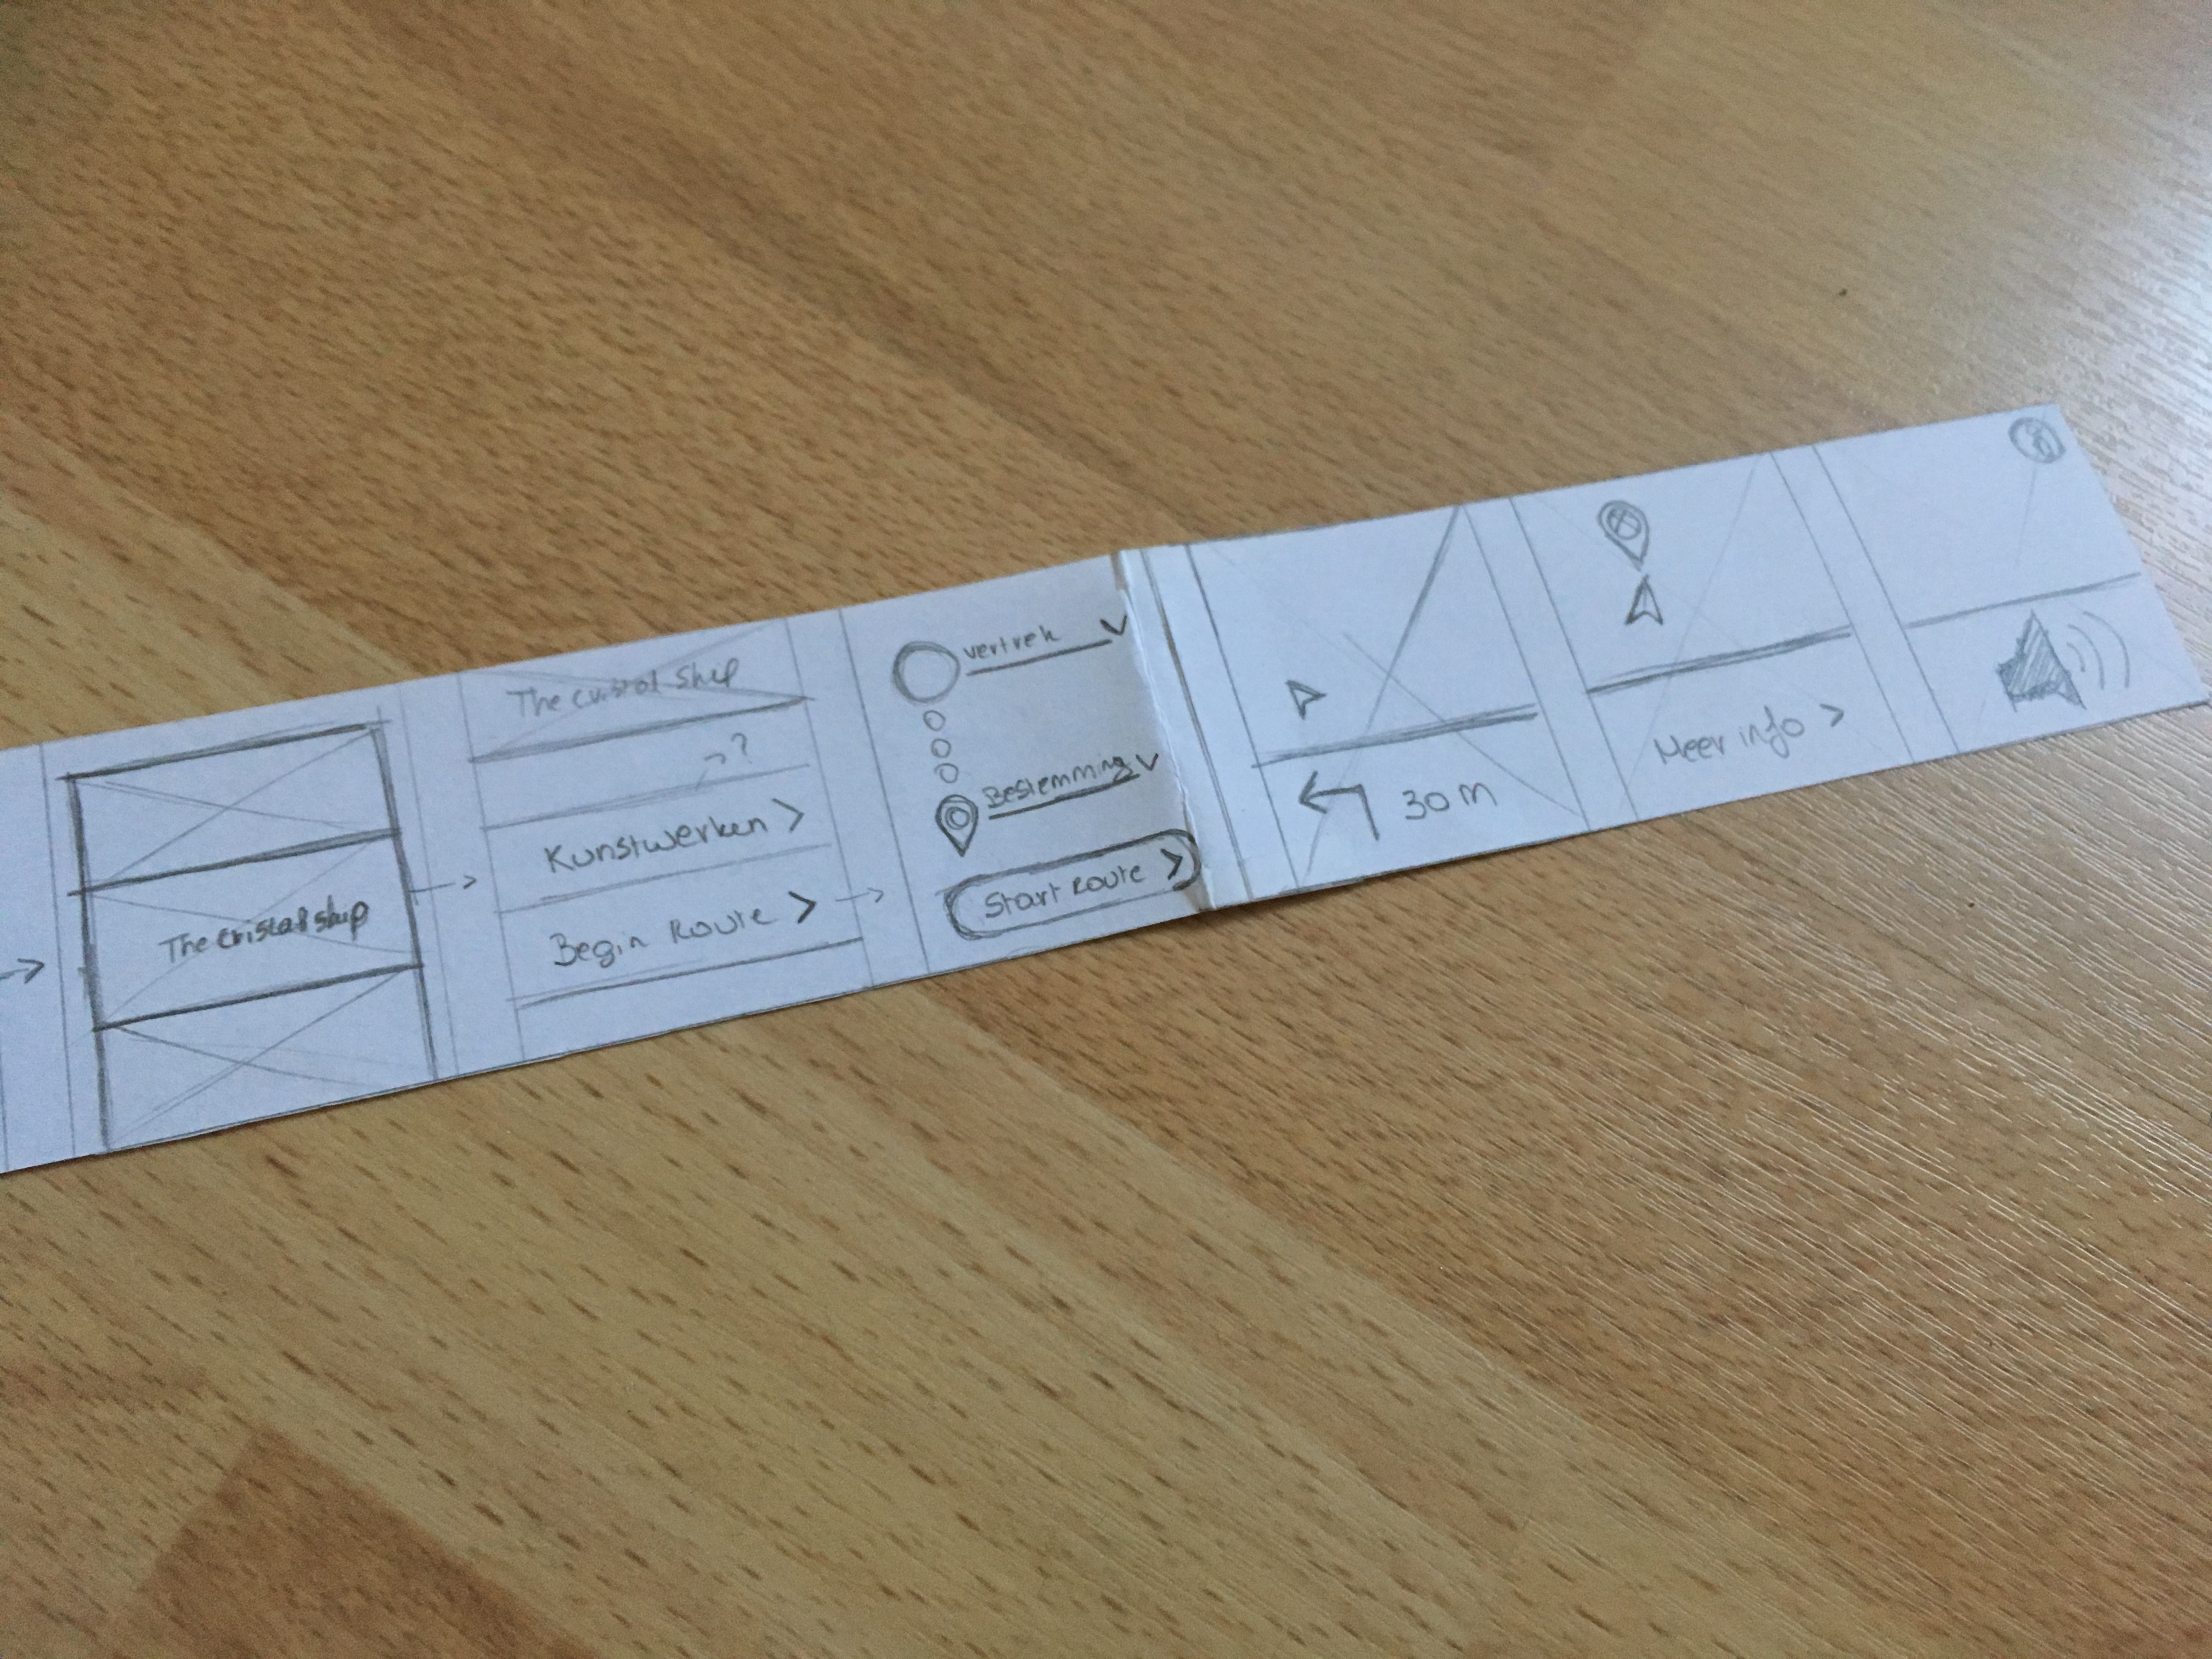 The cristal ship
The cristal Ship
?
Kunstwerken >
Begin Route >
vertrek
Bestemming
Start Route >
30 m
Meer info >